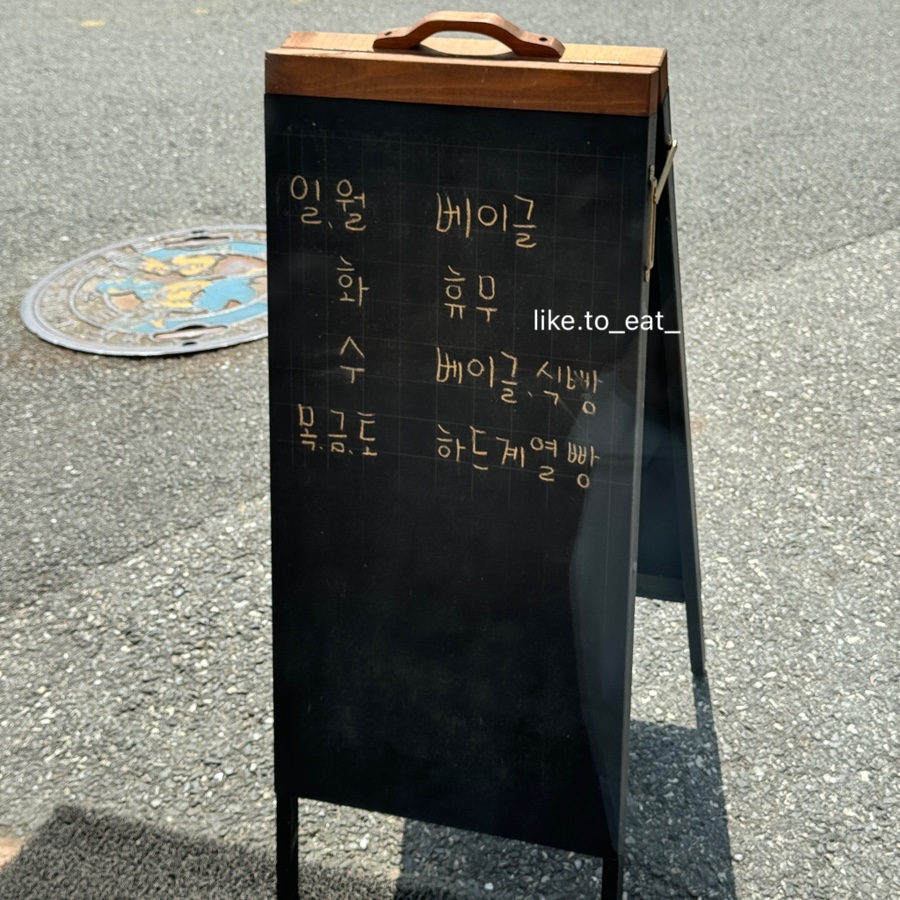 일.월 베이글
화 휴무
like.to_eat_
수 베이글.식빵
목.금.토 하드계열빵